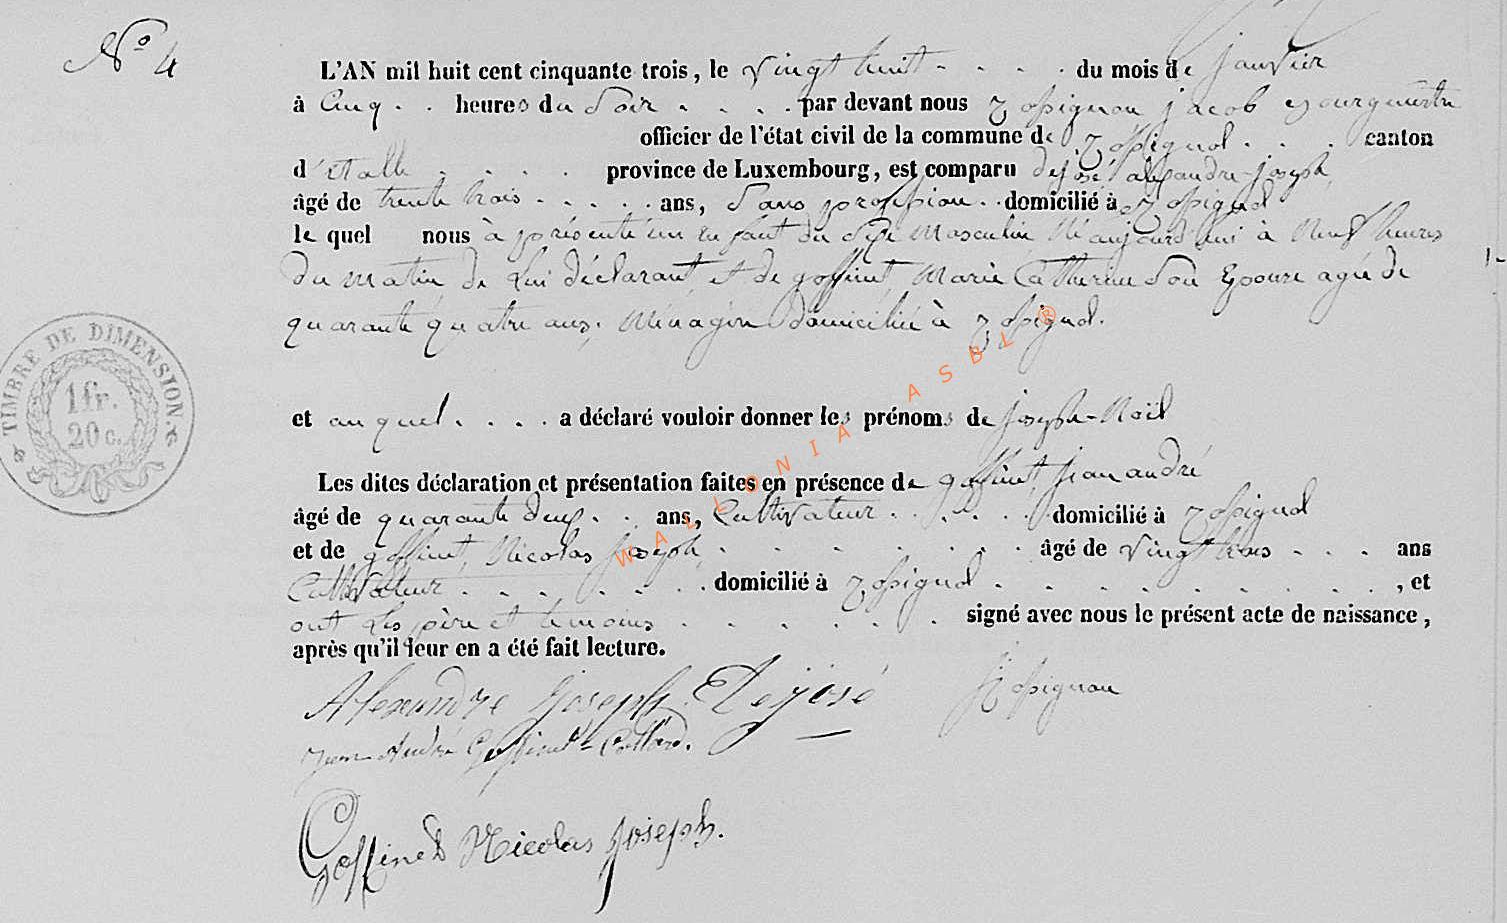 N° 4
L'AN mil huit cent cinquante trois, le vingt huit . . . . du mois de janvier
à Cinq . . heures du Soir . . . . par devant nous jacob Bourgmestre
officier de l'état civil de la commune de . . . canton
d'étalle . . . . province de Luxembourg, est comparu dejosé alexandre-joseph
âgé de trente trois . . . . . ans, Sans profession . . domicilié à
le quel nous à présenté un Enfant du Sexe Masculin Né aujourd'hui à Neuf heures
du matin de Lui déclarant, et de goffinet, Marie Catherine Son Epouse agée de
quarante quatre ans, Ménagère domiciliée à
et auquel . . . . a déclaré vouloir donner les prénoms de joseph-Noël
Les dites déclaration et présentation faites en présence de goffinet, jean andré
âgé de quarante deux . . ans, Cultivateur . . . . . . domicilié à
et de goffinet, Nicolas joseph, . . . . . . . . âgé de vingt trois . . . ans
Cultivateur . . . . . . . domicilié à . . . . . . . . . , et
ont Les père et temoins . . . . . . signé avec nous le présent acte de naissance,
après qu'il leur en a été fait lecture.
Alexandre Joseph Dejosé
Jean André Goffinet-Collard.
Goffinet Nicolas Joseph.
TIMBRE DE DIMENSION
1 fr.
20 c.
WALLONIA ASBL ®